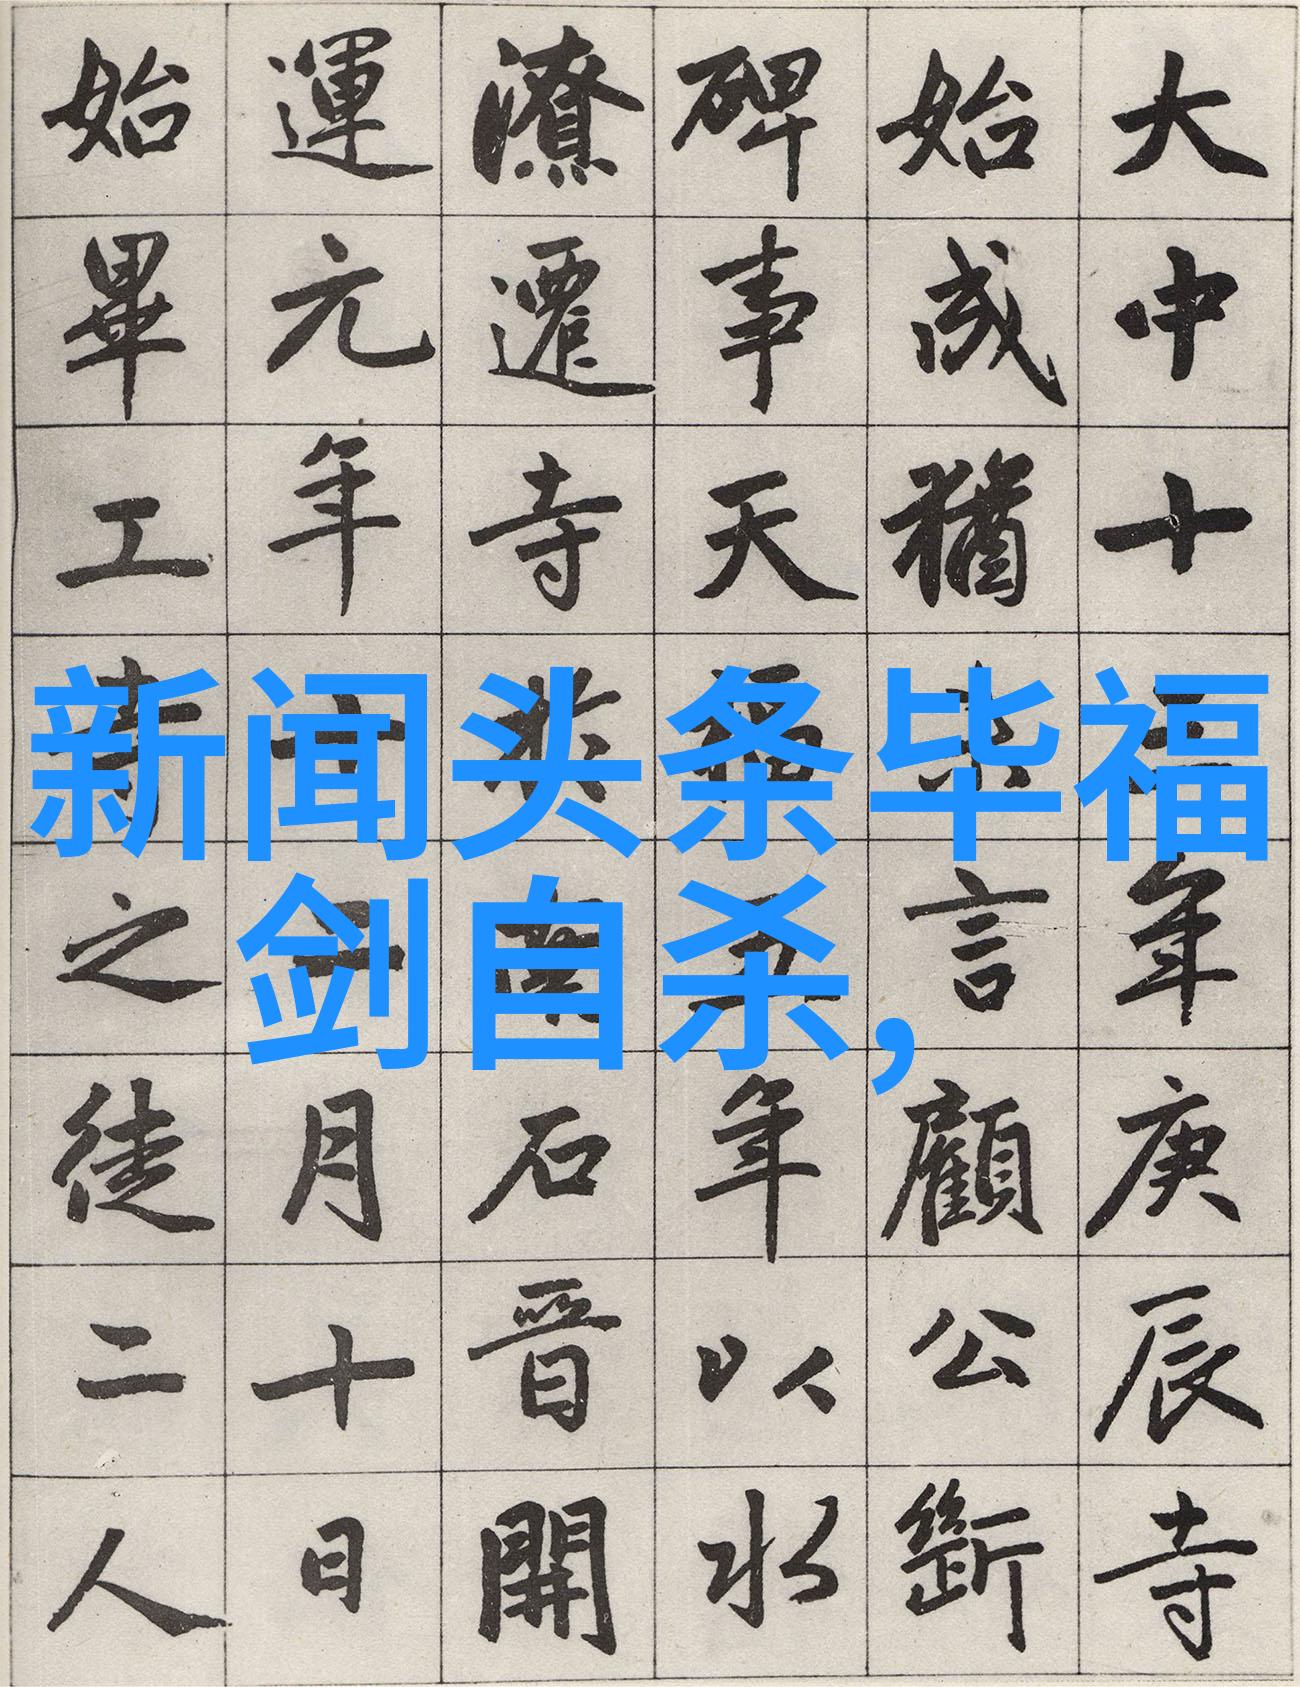 大中十年庚辰寺
始成猶言顧公斷
碑事天福五年以水
潦遷寺於石晉開
運元年十二月十日
始畢工寺之徒二人
新闻头条毕福
剑自杀,